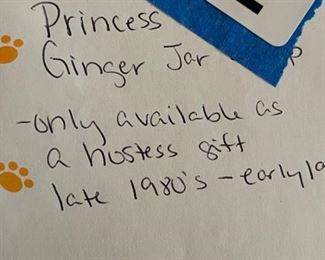 Princess
Ginger Jar
-only available as
a hostess gift
late 1980's - early